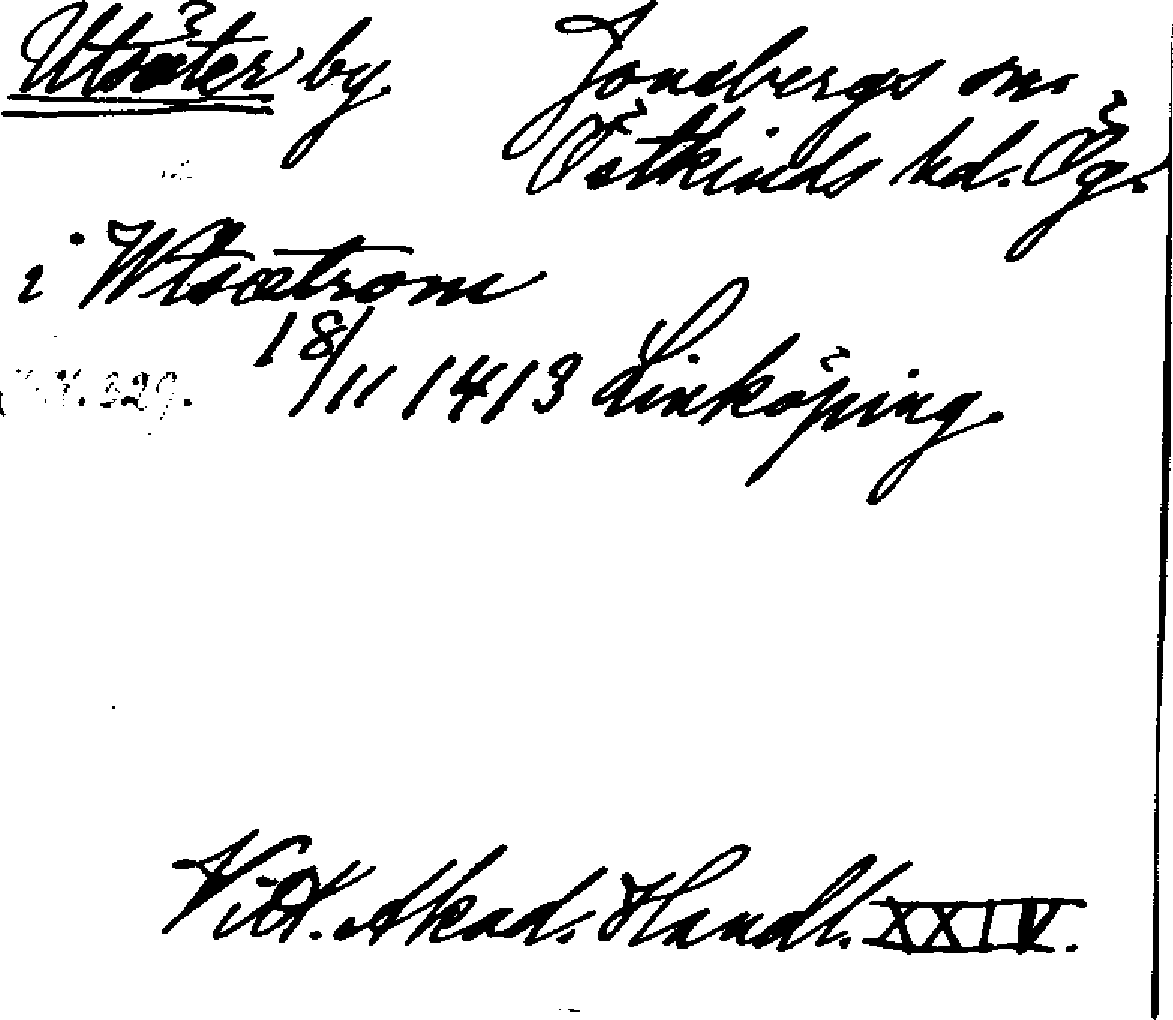 Utsäter by. Jonsbergs sn.
Östkinds hd. Ög.
i Wtsætrom
18/11 1413 Linköping.
329.
Vitt. Akad. Handl. XXIV.